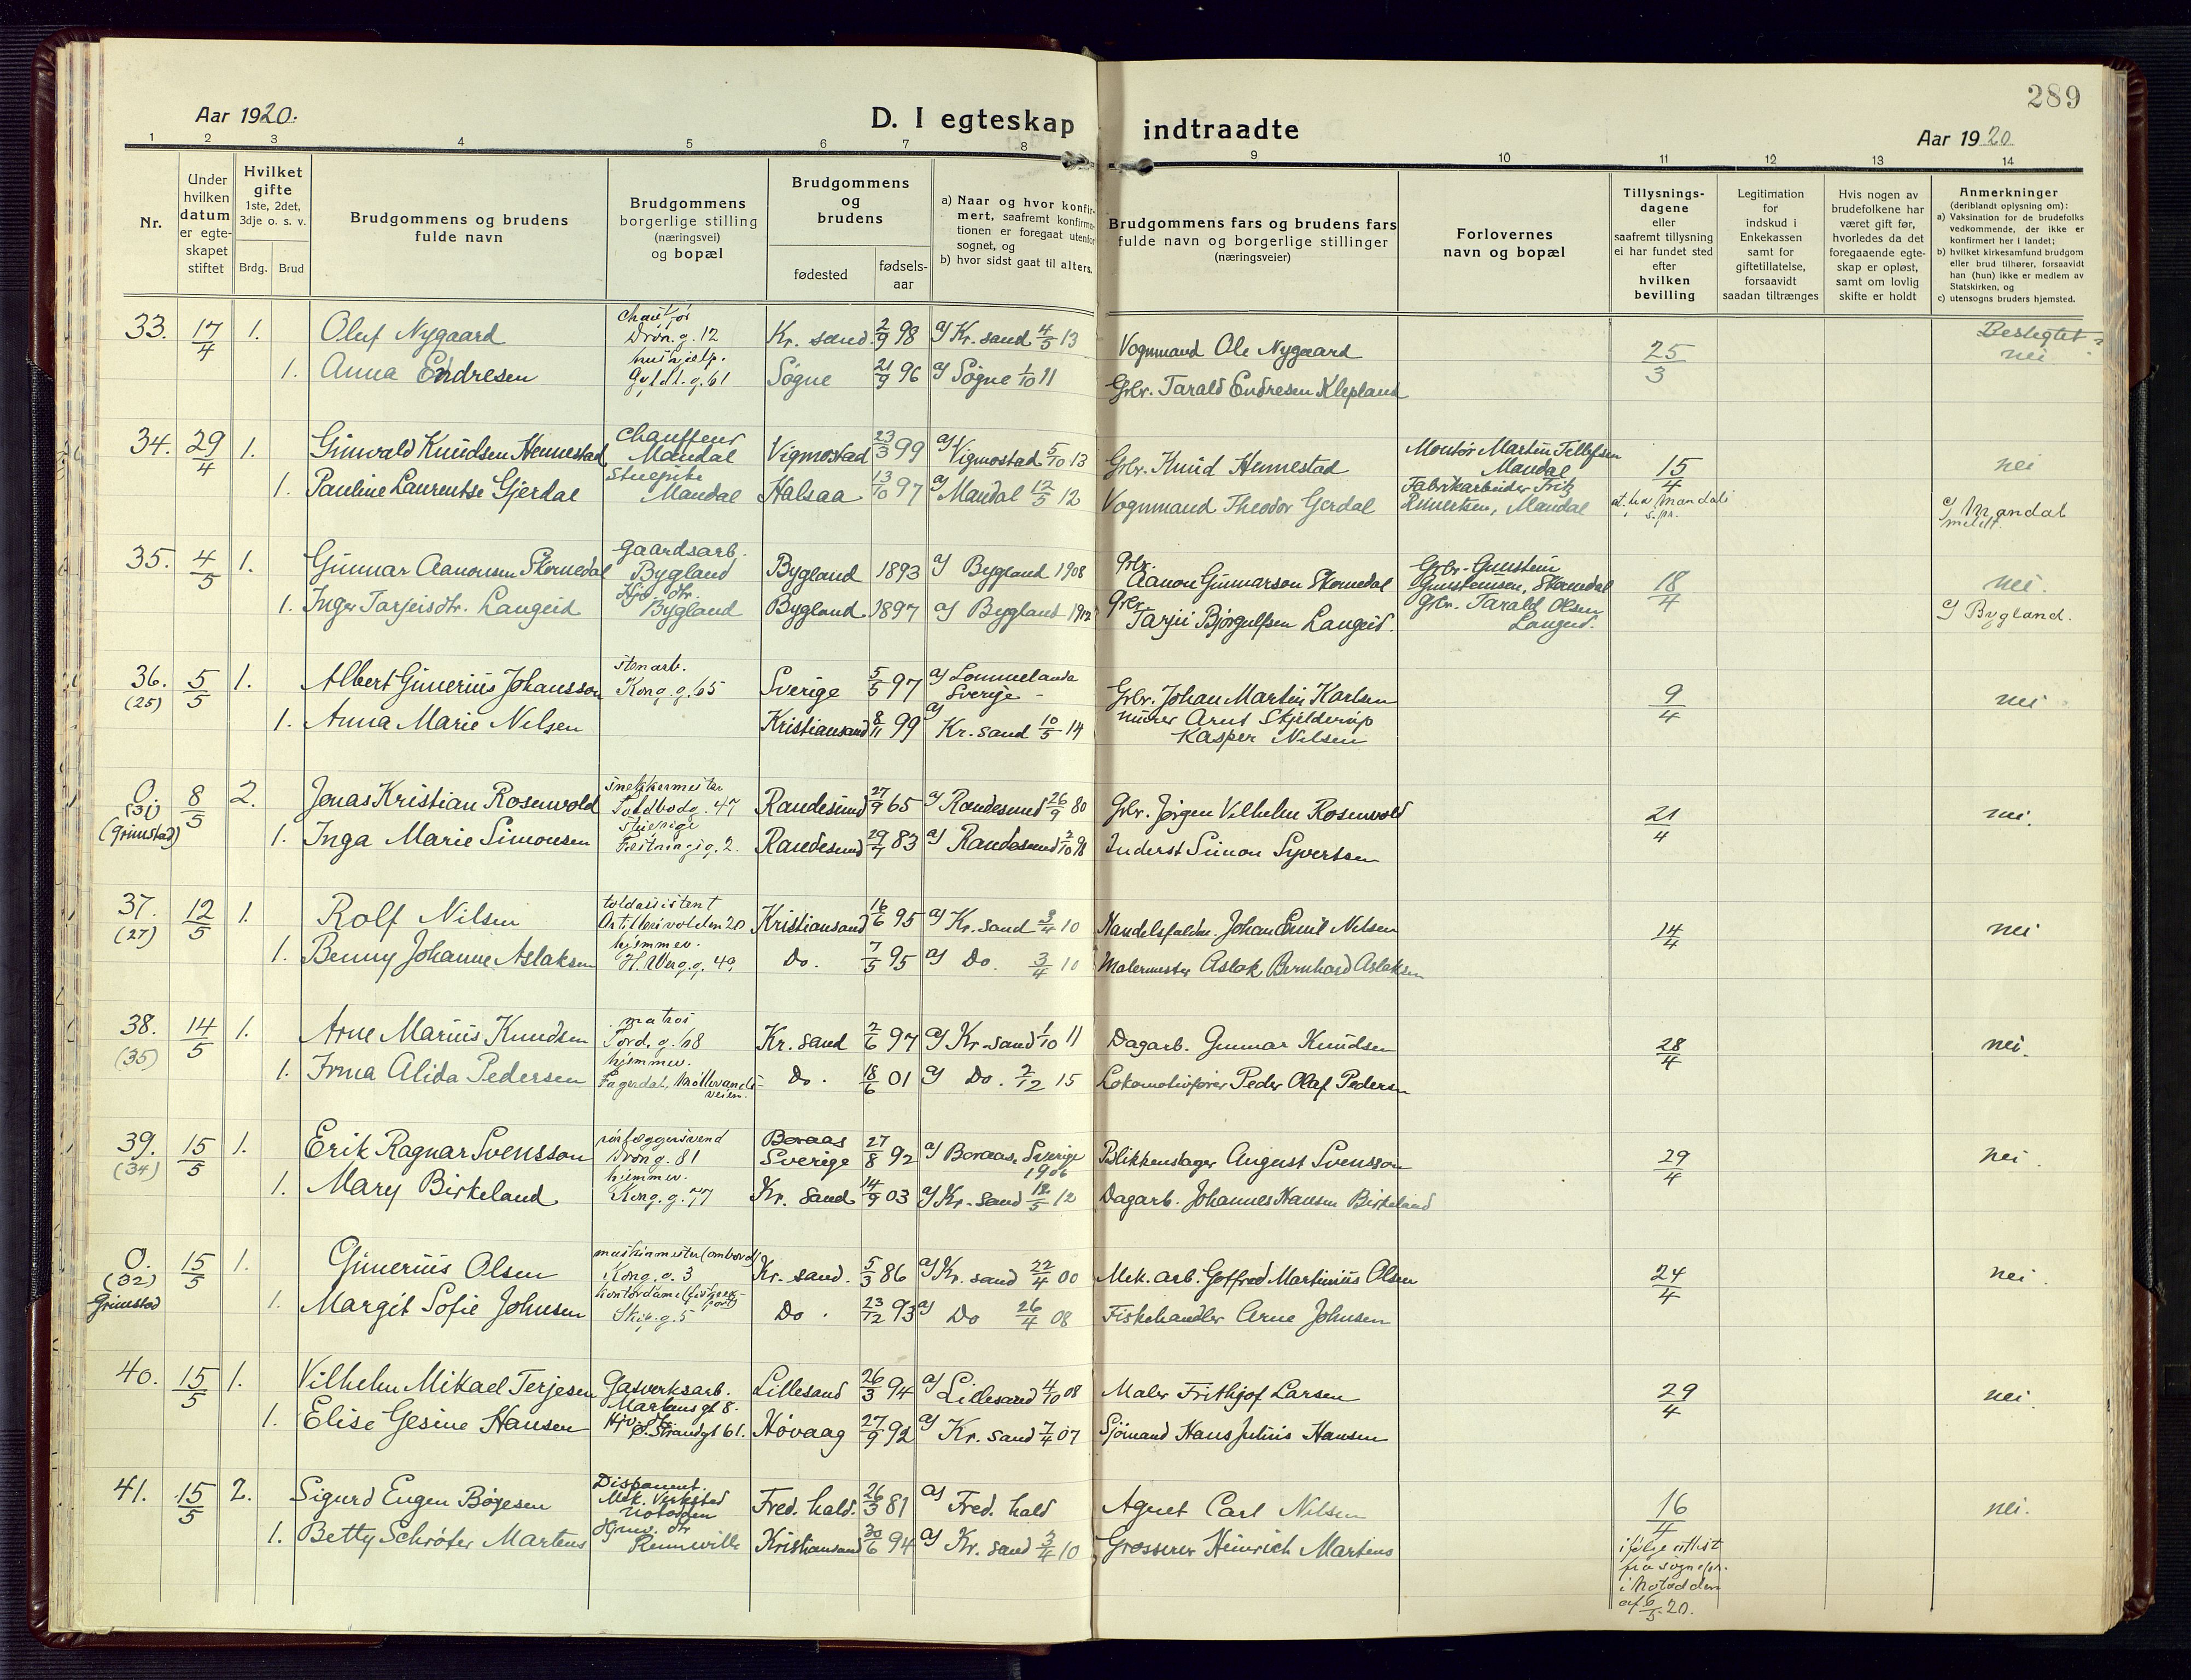 289
Aar 1920.
D. I egteskap indtraadte
Aar 1920
1 2 3 4 5 6 7 8 9 10 11 12 13 14
Nr.
Under hvilken datum er egteskapet stiftet
Hvilket gifte 1ste, 2det, 3dje o. s. v.
Brdg. Brud
Brudgommens og brudens fulde navn
Brudgommens borgerlige stilling (næringsvei) og bopæl
Brudgommens og brudens
fødested fødsels-aar
a) Naar og hvor konfirmert, saafremt konfirmationen er foregaat utenfor sognet, og
b) hvor sidst gaat til alters.
Brudgommens fars og brudens fars fulde navn og borgerlige stillinger (næringsveier)
Forlovernes navn og bopæl
Tillysningsdagene eller saafremt tillysning ei har fundet sted efter hvilken bevilling
Legitimation for indskud i Enkekassen samt for giftetillatelse, forsaavidt saadan tiltrænges
Hvis nogen av brudefolkene har været gift før, hvorledes da det foregaaende egteskap er opløst, samt om lovlig skifte er holdt
Anmerkninger (deriblandt oplysning om):
a) Vaksination for de brudefolks vedkommende, der ikke er konfirmert her i landet;
b) hvilket kirkesamfund brudgom eller brud tilhører, forsaavidt han (hun) ikke er medlem av Statskirken, og
c) utensogns bruders hjemsted.
33. 17/4 1. Oluf Nygaard Chauffør Dron. g. 12 Kr. sand. 2/9 98 a) Kr. sand 4/5 13 Vognmand Ole Nygaard 25/3 Beslegtet? nei
1. Anna Endresen hushjelp. Gyldl. g. 61 Søgne 21/9 96 a) Søgne 1/10 11 Grbr. Tarald Endresen Klepland
34. 29/4 1. Gunvald Knudsen Hennestad Chauffeur Mandal Vigmostad 23/3 99 a) Vigmostad 5/10 13 Grbr. Knud Hennestad Montør Martin Tellefsen Mandal 15/4 nei
1. Pauline Laurentse Gjerdal Stuepike Mandal Halsaa 13/10 97 a) Mandal 12/5 12 Vognmand Theodor Gjerdal Fabrikarbeider Fritz Mandal c) Mandal
35. 4/5 1. Gunnar Aanonsen Skomedal Gaardsarb. Bygland Bygland 1893 a) Bygland 1908 Grbr. Aanon Gunnarson Skomedal Grbr. Gunstein Gunsteinsen, Skomedal 18/4 nei.
1. Inger Tarjeisdtr. Langeid Hjv. dtr. Bygland Bygland 1897 a) Bygland 1912 Grbr. Tarjei Bjørgulfsen Langeid. Grbr. Tarald Olsen Langeid. c) Bygland.
36. (25) 5/5 1. Albert Gunerius Johansson Stenarb. Kong. g. 65 Sverige 5/5 97 a) Lommelanda Sverige - Grbr. Johan Martin Karlsen 9/4 nei
1. Anna Marie Nilsen Kristiansand 8/11 99 a) Kr. sand 10/5 14 Murer Arnt Skjelderup Kasper Nilsen
0. (31) (Grimstad) 8/5 2. Jonas Kristian Rosenvold snekkermester Toldbodg. 47 Randesund 27/9 65 a) Randesund 26/9 80 Grbr. Jørgen Vilhelm Rosenvold 21/4 nei.
1. Inga Marie Simonsen stuepige Festningsg. 2. Randesund 29/7 83 a) Randesund 2/10 98 Inderst Simon Syvertsen
37. (27) 12/5 1. Rolf Nilsen toldassistent Artillerivolden 20 Kristiansand 16/6 95 a) Kr. sand 3/4 10 Handelsfuldm. Johan Emil Nilsen 14/4 nei
1. Benny Johanne Aslaksen hjemmev. H. Werg. g. 49 Do. 7/5 95 a) Do. 3/4 10 Malermester Aslak Bernhard Aslaksen
38. (35) 14/5 1. Arne Marius Knudsen matros Tord. g. 68 Kr. sand 2/6 97 a) Kr. sand 1/10 11 Dagarb. Gunnar Knudsen 28/4 nei.
1. Irma Alida Pedersen hjemmev. Fagerdal, Møllevandsveien. Do. 18/6 01 a) Do. 2/12 15 Lokomotivfører Peder Olaf Pedersen
39. (34) 15/5 1. Erik Ragnar Svensson rørlæggersvend Dron g. 81 Boraas Sverige 27/8 92 a) Boraas, Sverige 1906 Blikkenslager August Svensson 29/4 nei.
1. Mary Birkeland hjemmev. Kong. g. 77 Kr. sand 14/9 03 a) Kr. sand 12/5 12 Dagarb. Johannes Hansen Birkeland
0. (32) Grimstad 15/5 1. Gunerius Olsen maskinmester (ombord) Kong. g. 3 Kr. sand. 5/3 86 a) Kr. sand 22/4 00 Mek. arb. Gotfred Martinius Olsen 24/4 nei.
1. Margit Sofie Johnsen kontordame Skip. g. 5 Do. 23/12 93 a) Do 26/4 08 Fiskehandler Arne Johnsen
40. 15/5 1. Vilhelm Mikael Terjesen Gasverksarb. Martensgt 8. Lillesand 26/3 94 a) Lillesand 4/10 08 Maler Frithjof Larsen 29/4 nei.
1. Elise Gesine Hansen Hjv. dtr. Ø. Strandgt 61. Høvaag 27/9 92 a) Kr. sand 7/4 07 Sjømand Hans Julius Hansen
41. 15/5 2. Sigurd Eugen Børesen Disponent Mek. Verksted Notodden Fred. hald. 26/3 81 a) Fred. hald Agent Carl Nilsen 16/4 nei.
1. Betty Schrøter Martens Hjmv. dtr Rennwille Kristiansand 30/6 94 a) Kr. sand 3/4 10 Grosserer Heinrich Martens ifølge attest fra sognepr. i Notodden af 6/5 20.